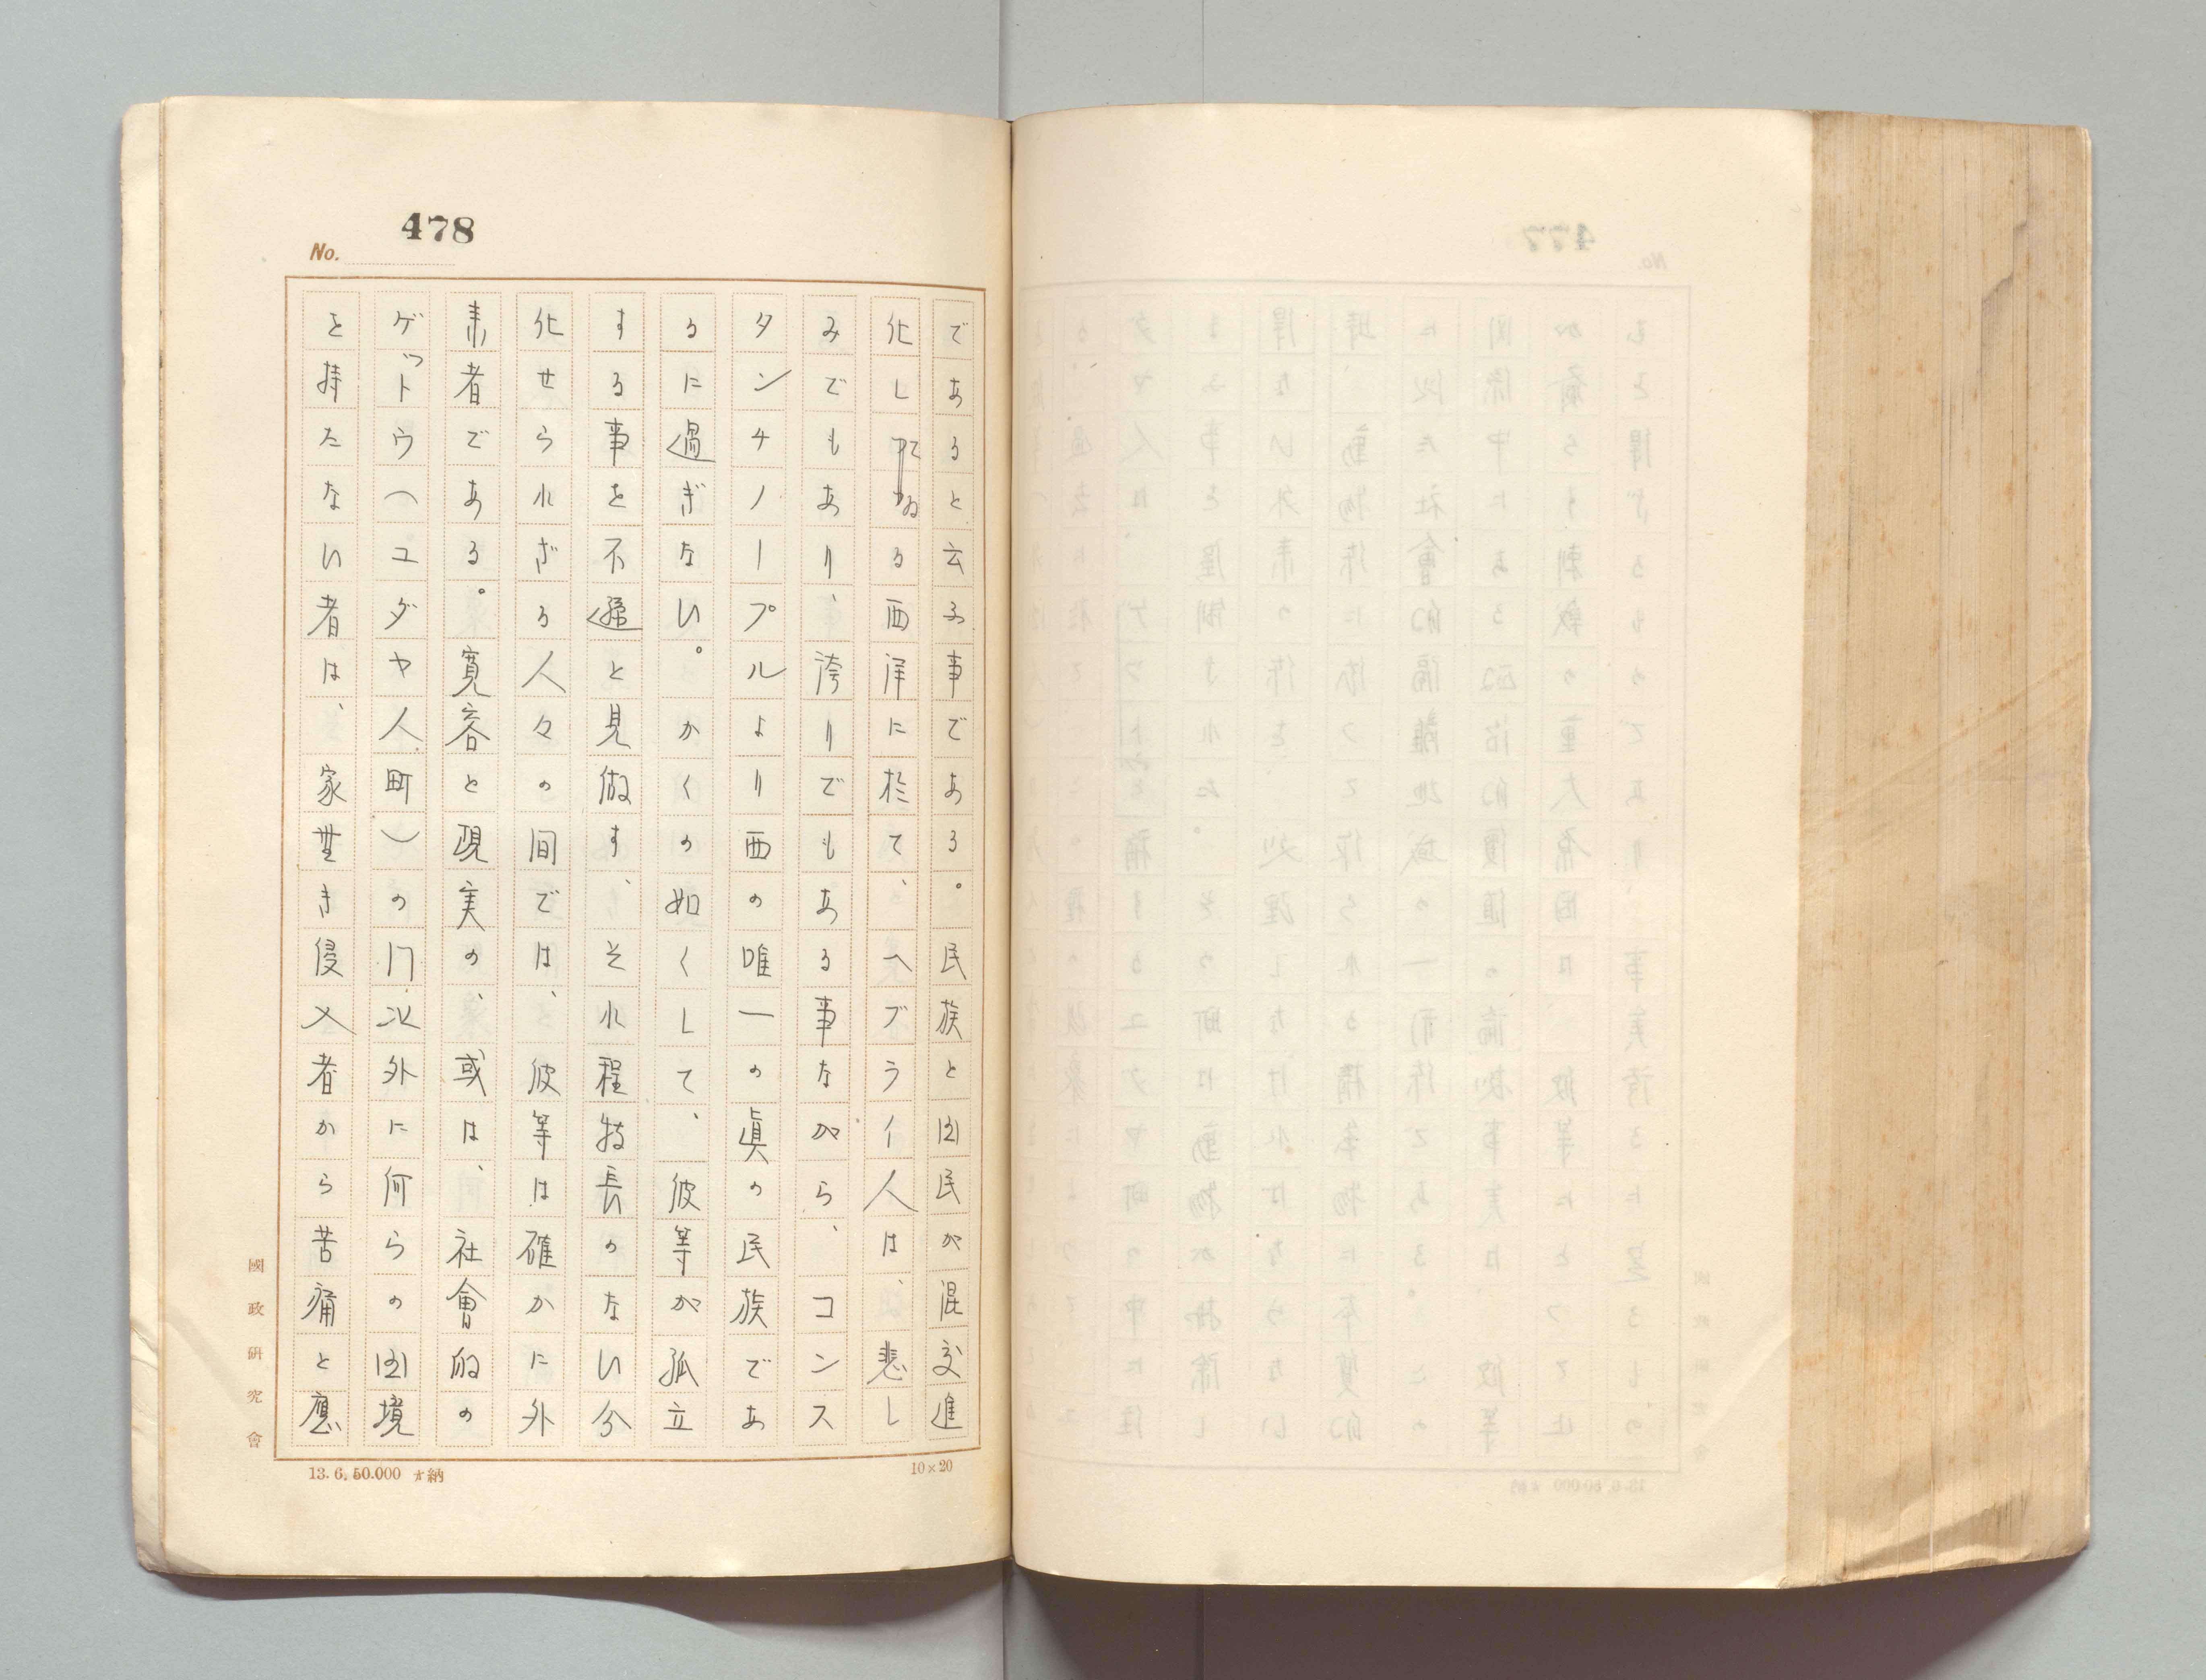 478
No.
であると云ふ事である。民族と国民が混交進
化してゐる西洋に於て、ヘブライ人は、悲し
みでもあり、誇りでもある事ながら、コンス
タンチノープルより西の唯一の眞の民族であ
るに過ぎない。かくの如くして、彼等が孤立
する事を不遜と見做す、それ程特長のない分
化せられざる人々の間では、彼等は確かに外
来者である。寛容と現実の、或は、社會的の
ゲットウ（ユダヤ人町）の門以外に何らの国境
を持たない者は、家無き侵入者から苦痛と應
國政研究會
13. 6. 50.000 納
10×20